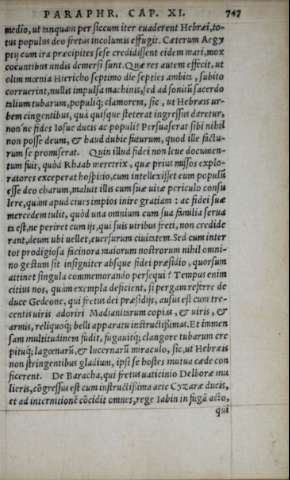 PARAPHR. CAP. XI. 747
medio, ut tanquam per siccum iter euaderent Hebræi, to-
tus populus deo fretus incolumis effugit. Cæterum Aegy
ptij cum ira præcipites sese credidissent eidem mari, mox
coeuntibus undis demersi sunt. Quæ res autem effecit, ut
olim mœnia Hiericho septimo die septies ambita, subito
corruerint, nullis impulsa machinis, sed ad sonitū sacerdo
talium tubarum, populiq́; clamorem, sic, ut Hebræis ur-
bem cingentibus, quà quisque steterat ingressus daretur,
non'ne fides Iosue ducis ac populi? Persuaserat sibi nihil
non posse deum, & haud dubiè futurum, quod ille factu-
rum se promiserat. Quin illud fidei non leue documen-
tum fuit, quòd Rhaab meretrix, quæ prius missos explo-
ratores exceperat hospitio, cum intellexisset eum populū
esse deo charum, maluit illis cum suæ uitæ periculo consu
lere, quàm apud ciues impios inire gratiam: ac fidei suæ
mercedem tulit, quòd una omnium cum sua familia serua
ta est, ne periret cum ijs, qui suis uiribus freti, non credide
rant, deum ubi uellet, euersurum ciuitatem. Sed cum inter
tot prodigiosa facinora maiorum nostrorum nihil omni-
no gestum sit insigniter absque fidei præsidio, quorsum
attinet singula commemorando persequi? Tempus enim
citius nos, quàm exempla deficient, si pergam referre de
duce Gedeone, qui fretus dei præsidijs, ausus est cum tre-
centis uiris adoriri Madianitarum copias, & uiris, &
armis, reliquoq́; belli apparatu instructissimas. Et immen
sam multitudinem fudit, fugauitq́; clangore tubarum cre
pituq́; lagœnarū, & lucernarū miraculo, sic, ut Hebræis
non stringentibus gladium, ipsi se hostes mutua cæde con
ficerent. De Baracha, qui fretus uaticinio Delboræ mu
lieris, cōgressus est cum instructissima acie Cyzaræ ducis,
et ad internitionē cōcidit omnes, rege Iabin in fugā acto,
qui